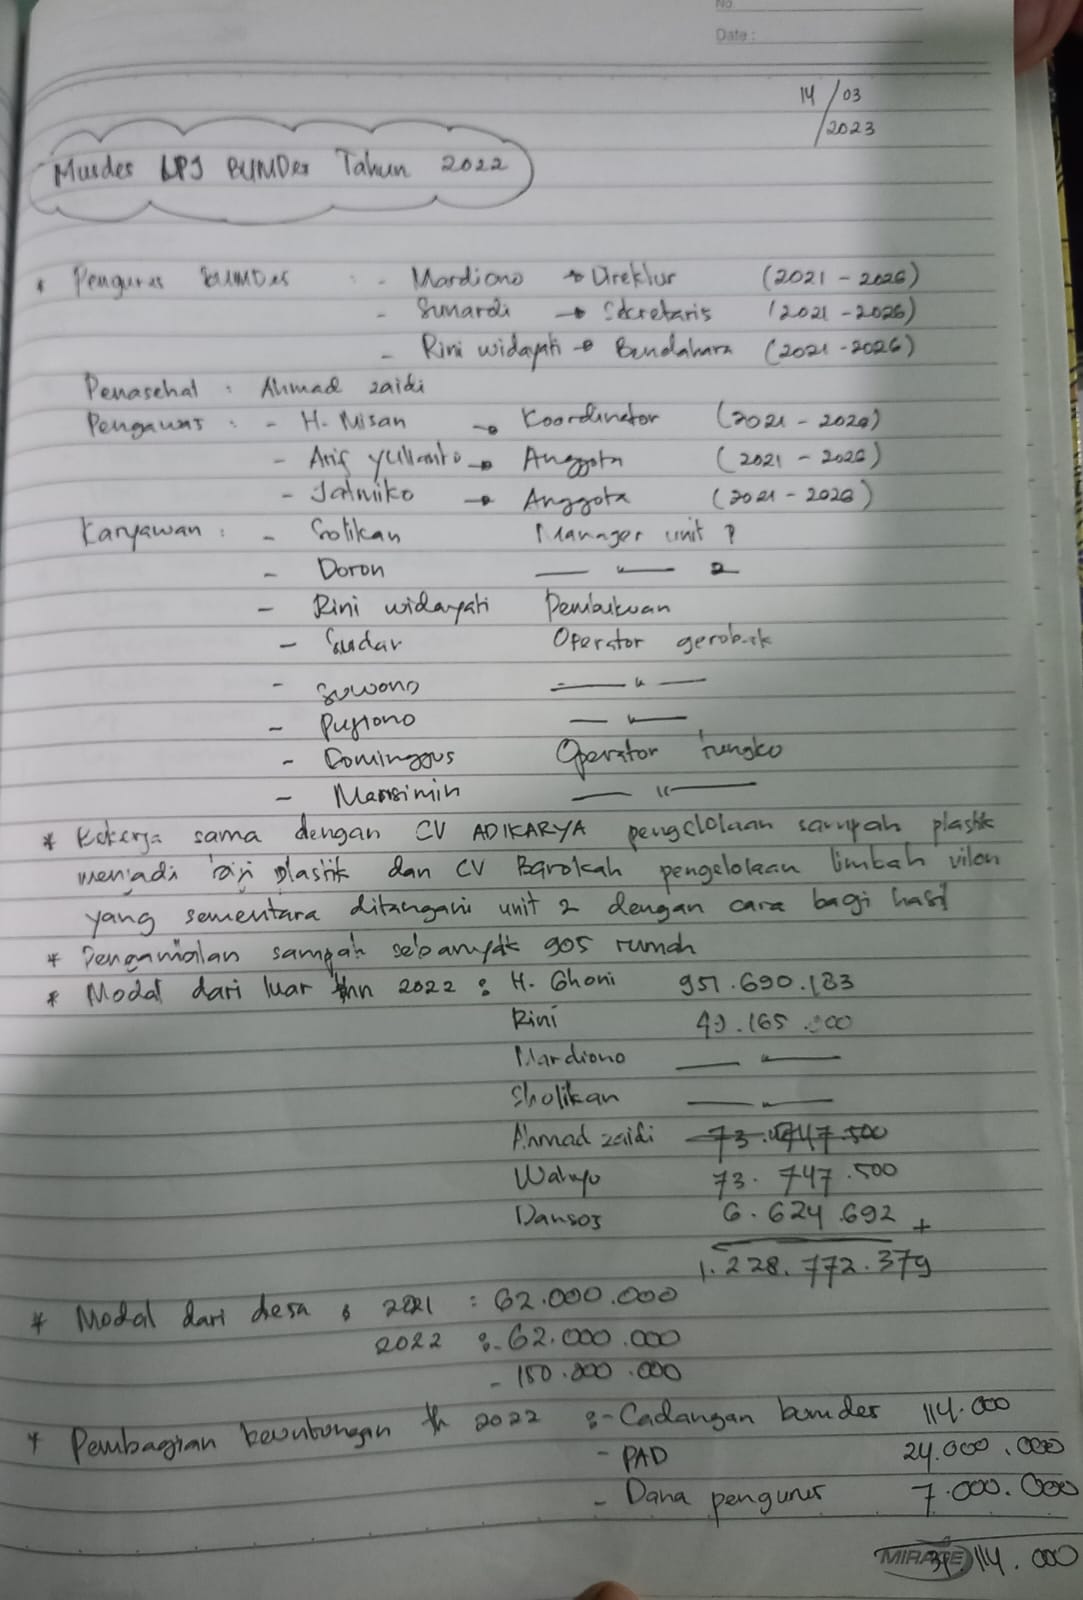 No
Date :
14 / 03
/ 2023
Musdes LPJ BUMDes Tahun 2022
* Pengurus BUMDes : - Mardiono → Direktur (2021 - 2026)
- Sunardi → Sekretaris (2021 - 2026)
- Rini widayati → Bendahara (2021 - 2026)
Penasehat : Ahmad zaidi
Pengawas : - H. Misan → Koordinator (2021 - 2026)
- Arif yulianto → Anggota (2021 - 2026)
- Jatmiko → Anggota (2021 - 2026)
Karyawan : - Solikan Manager unit 1
- Doron — " — 2
- Rini widayati Pembukuan
- Sudar Operator gerobak
- Suwono — " —
- Pujiono — " —
- Dominggus Operator tungku
- Marsimin — " —
* Bekerja sama dengan CV ADIKARYA pengelolaan sampah plastik
menjadi biji plastik dan CV Barokah pengelolaan limbah vilon
yang sementara ditangani unit 2 dengan cara bagi hasil
* Pengambilan sampah sebanyak 905 rumah
* Modal dari luar thn 2022 : H. Ghoni 951.690.183
Rini 40.165.000
Mardiono — " —
Sholikan — " —
Ahmad zaidi 73.747.500
Waluyo 73.747.500
Dansos 6.624.692 +
1.228.772.379
* Modal dari desa : 2021 : 62.000.000
2022 : - 62.000.000
- 150.000.000
* Pembagian keuntungan th 2022 : - Cadangan bumdes 114.000
- PAD 24.000.000
- Dana pengurus 7.000.000
MIRAGE
31.114.000